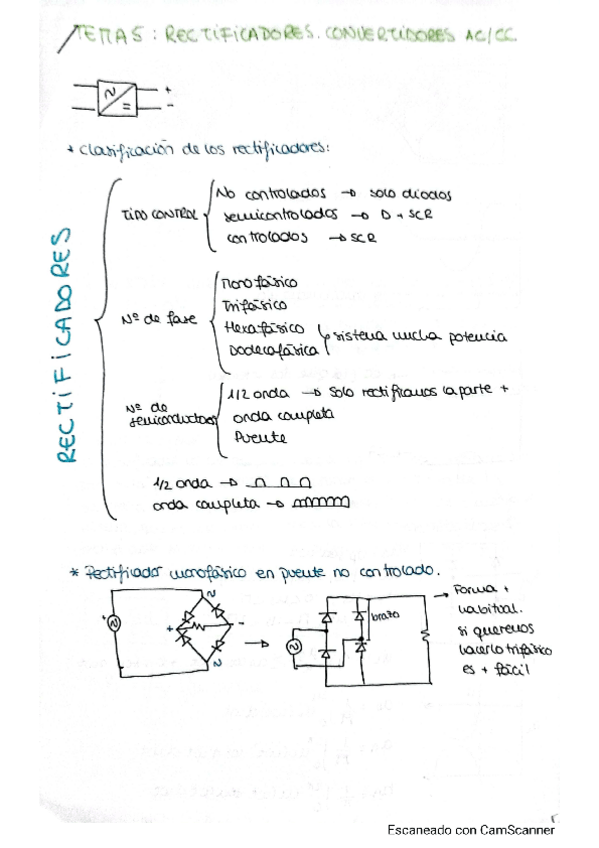 TEMA 5: RECTIFICADORES. CONVERTIDORES AC/CC
+ -
* Clasificación de los rectificadores:
RECTIFICADORES
TIPO CONTROL
No controlados → solo diodos
semicontrolados → D + SCR
controlados → SCR
Nº de fase
Monofásico
Trifásico
Hexafásico
Dodecafásica
sistema mucha potencia
Nº de semiconductores
1/2 onda → Solo rectificamos la parte +
onda completa
Puente
1/2 onda →
onda completa →
* Rectificador monofásico en puente no controlado.
+ -
brazo
→ Forma +
habitual.
si queremos
hacerlo trifásico
es + fácil
Escaneado con CamScanner